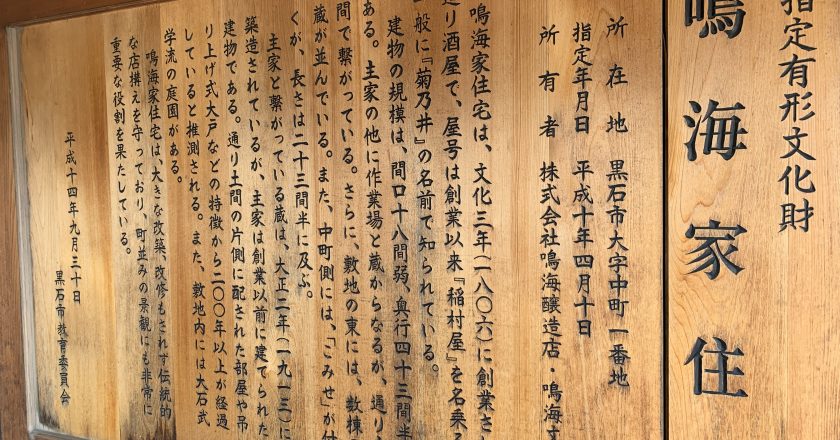 指定有形文化財
鳴海家住
所在地 黒石市大字中町一番地
指定年月日 平成十年四月十日
所有者 株式会社鳴海醸造店・鳴海
鳴海家住宅は、文化三年(一八〇六)に創業さ
り酒屋で、屋号は創業以来『稲村屋』を名乗
般に『菊乃井』の名前で知られている。
建物の規模は、間口十八間弱、奥行四十三間半
ある。主家の他に作業場と蔵からなるが、通り
間で繋がっている。さらに、敷地の東には、数棟
蔵が並んでいる。また、中町側には、「こみせ」が付
くが、長さは二十三間半に及ぶ。
主家と繋がっている蔵は、大正二年(一九一三)に
築造されているが、主家は創業以前に建てられた
建物である。通り土間の片側に配された部屋や吊
り上げ式大戸などの特徴から二〇〇年以上が経過
していると推測される。また、敷地内には大石武
学流の庭園がある。
鳴海家住宅は、大きな改築、改修もされず伝統的
な店構えを守っており、町並みの景観にも非常に
重要な役割を果たしている。
平成十四年九月三十日
黒石市教育委員会